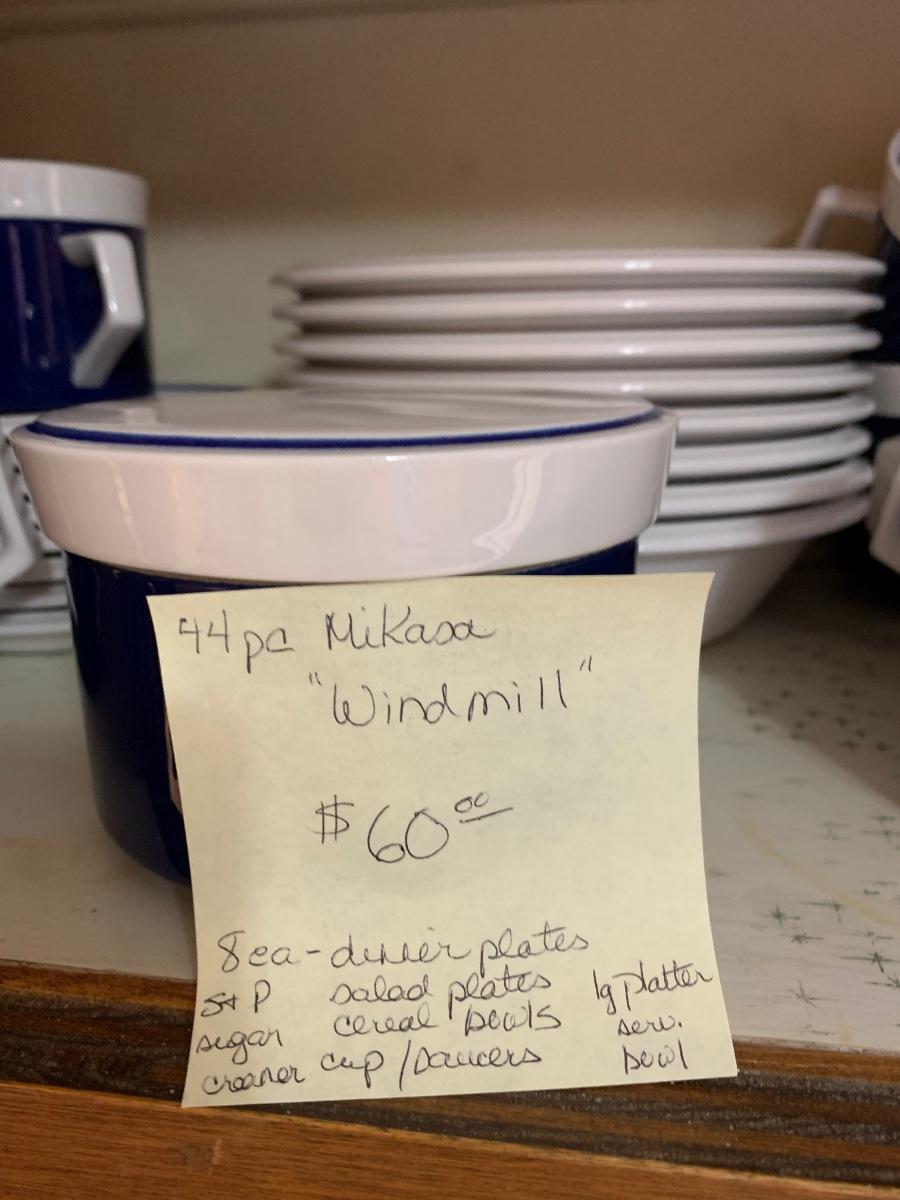 44 pc Mikasa
"Windmill"
$60.00
8 ea - dinner plates
S+P salad plates lg platter
sugar cereal bowls serv.
creamer cup/saucers bowl